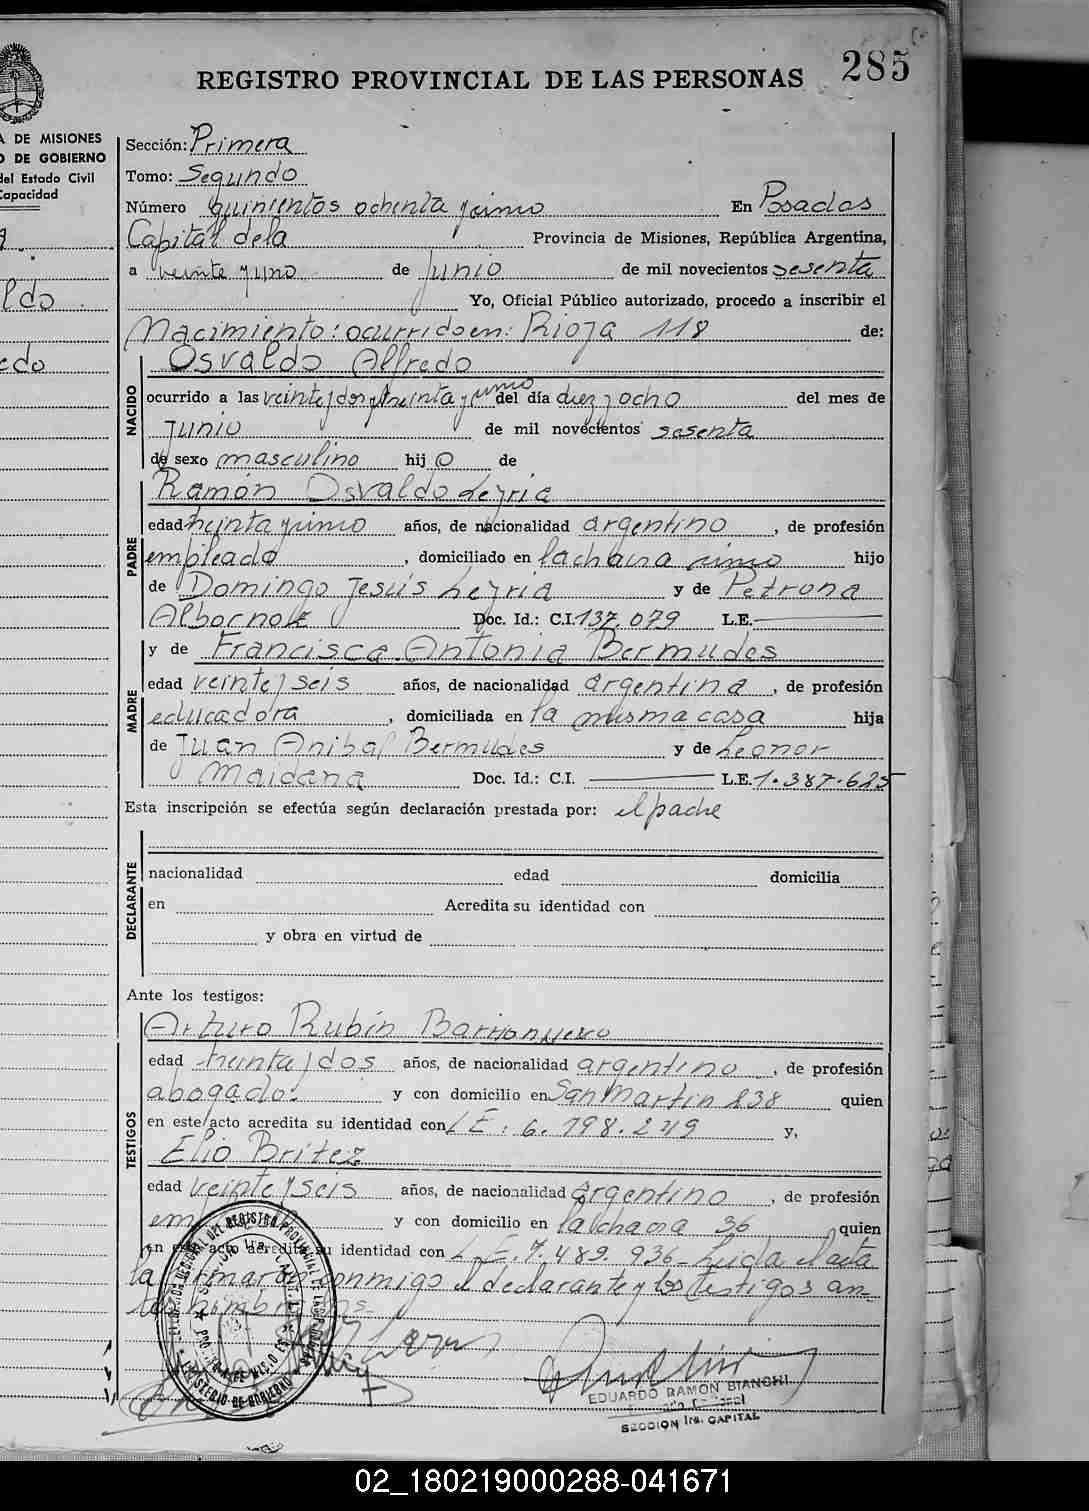 285
REGISTRO PROVINCIAL DE LAS PERSONAS
A DE MISIONES
O DE GOBIERNO
del Estado Civil
Capacidad
Sección: Primera
Tomo: Segundo
Número quinientos ochenta y cinco En Posadas
Capital de la Provincia de Misiones, República Argentina,
a veinte y uno de Junio de mil novecientos sesenta
Yo, Oficial Público autorizado, procedo a inscribir el
Nacimiento: ocurrido en: Rioja 118 de:
NACIDO
Osvaldo Alfredo
ocurrido a las veinte y dos y treinta y cinco del día diez y ocho del mes de
Junio de mil novecientos sesenta
de sexo masculino hijo de
PADRE
Ramón Osvaldo Leyria
edad treinta y cinco años, de nacionalidad argentino, de profesión
empleado, domiciliado en la chacra cinco hijo
de Domingo Jesús Leyria y de Petrona
Albornoz Doc. Id.: C.I. 137.079 L.E.
MADRE
y de Francisca Antonia Bermudes
edad veinte y seis años, de nacionalidad argentina, de profesión
educadora, domiciliada en la misma casa hija
de Juan Anibal Bermudes y de Leonor
Maidana Doc. Id.: C.I. L.E. 1.387.625
Esta inscripción se efectúa según declaración prestada por: el padre
DECLARANTE
nacionalidad edad domicilia
en Acredita su identidad con
y obra en virtud de
Ante los testigos:
TESTIGOS
Arturo Rubín Barrionuevo
edad treinta y dos años, de nacionalidad argentino, de profesión
abogado: y con domicilio en San Martín 238 quien
en este acto acredita su identidad con L E. 6.798.249 y,
Elio Britez
edad veinte y seis años, de nacionalidad argentino, de profesión
y con domicilio en la chacra 36 quien
en este acto acredita su identidad con L.E. 7.489.936 Leida el acta
la firmaron conmigo el declarante y los testigos an-
EDUARDO RAMON BIANCHI
SECCION 1ra. CAPITAL
02_180219000288-041671